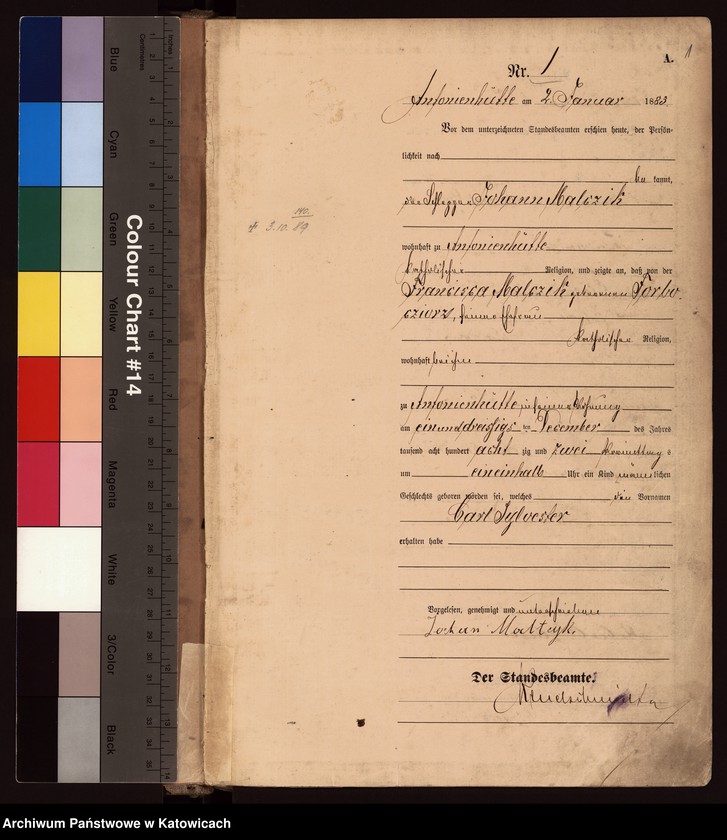 A.
1
Nr. 1
Antonienhütte am 2 Januar 1883
Vor dem unterzeichneten Standesbeamten erschien heute, der Persön-
lichkeit nach
be kannt,
der Schlepper Johann Malczik
wohnhaft zu Antonienhütte
katholischer Religion, und zeigte an, daß von der
Francisca Malczik geborenen Torbo-
cziorz, seiner Ehefrau
katholischer Religion,
wohnhaft bei ihm
zu Antonienhütte, in seiner Wohnung
am einunddreißigs ten December des Jahres
tausend acht hundert acht zig und zwei Vormittags
um eineinhalb Uhr ein Kind männlichen
Geschlechts geboren worden sei, welches den Vornamen
Carl Sylvester
erhalten habe
Vorgelesen, genehmigt und unterschrieben
Johan Maltcyk.
Der Standesbeamte.
† 3.10.89
Colour Chart #14
Blue
Cyan
Green
Yellow
Red
Magenta
White
3/Color
Black
Centimetres
Inches
Archiwum Państwowe w Katowicach